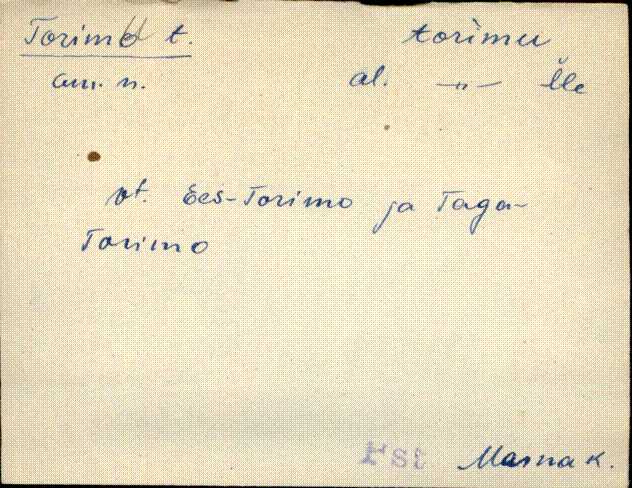 Torimo t. torìmu
am. n. al. -„- l̆le
vt. Ees-Torimo ja Taga-
Torimo
Pst Masna k.